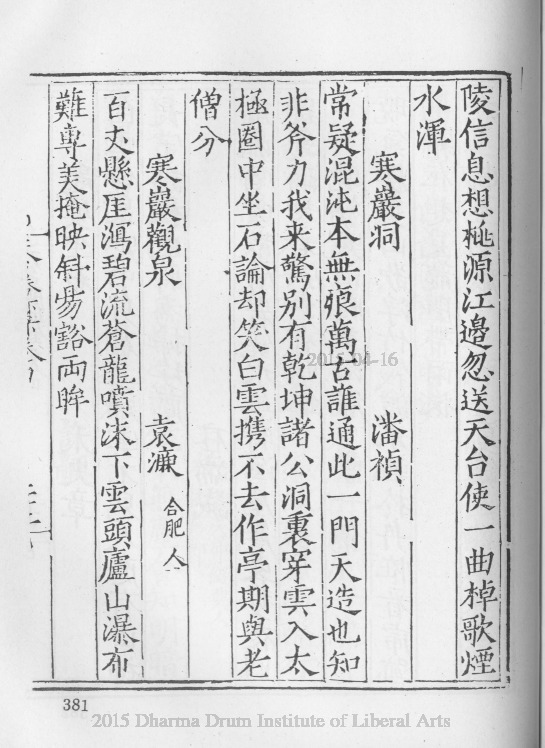 陵信息想桃源江邉忽送天台使一曲棹歌煙
水渾
寒巖洞 潘禎
常疑混沌本無痕萬古誰通此一門天造也知
非斧力我来驚別有乾坤諸公洞裏穿雲入太
極圈中坐石論却笑白雲携不去作亭期與老
僧分
寒巖觀泉 袁濂 合肥人
百丈懸厓瀉碧流蒼龍噴沫下雲頭廬山瀑布
難專美掩映斜昜豁両眸
381
2015-04-16
2015 Dharma Drum Institute of Liberal Arts